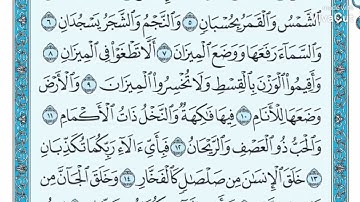 ٱلشَّمْسُ وَٱلْقَمَرُ بِحُسْبَانٍ ٥ وَٱلنَّجْمُ وَٱلشَّجَرُ يَسْجُدَانِ ٦
وَٱلسَّمَآءَ رَفَعَهَا وَوَضَعَ ٱلْمِيزَانَ ٧ أَلَّا تَطْغَوْا۟ فِى ٱلْمِيزَانِ ٨
وَأَقِيمُوا۟ ٱلْوَزْنَ بِٱلْقِسْطِ وَلَا تُخْسِرُوا۟ ٱلْمِيزَانَ ٩ وَٱلْأَرْضَ
وَضَعَهَا لِلْأَنَامِ ١٠ فِيهَا فَٰكِهَةٌ وَٱلنَّخْلُ ذَاتُ ٱلْأَكْمَامِ ١١
وَٱلْحَبُّ ذُو ٱلْعَصْفِ وَٱلرَّيْحَانُ ١٢ فَبِأَىِّ ءَالَآءِ رَبِّكُمَا تُكَذِّبَانِ
١٣ خَلَقَ ٱلْإِنسَٰنَ مِن صَلْصَٰلٍ كَٱلْفَخَّارِ ١٤ وَخَلَقَ ٱلْجَآنَّ مِن